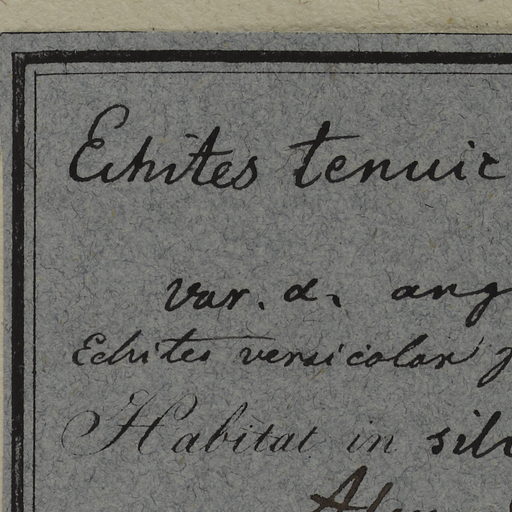 Echites tenuic
var. α. ang
Echites versicolor
Habitat in silv